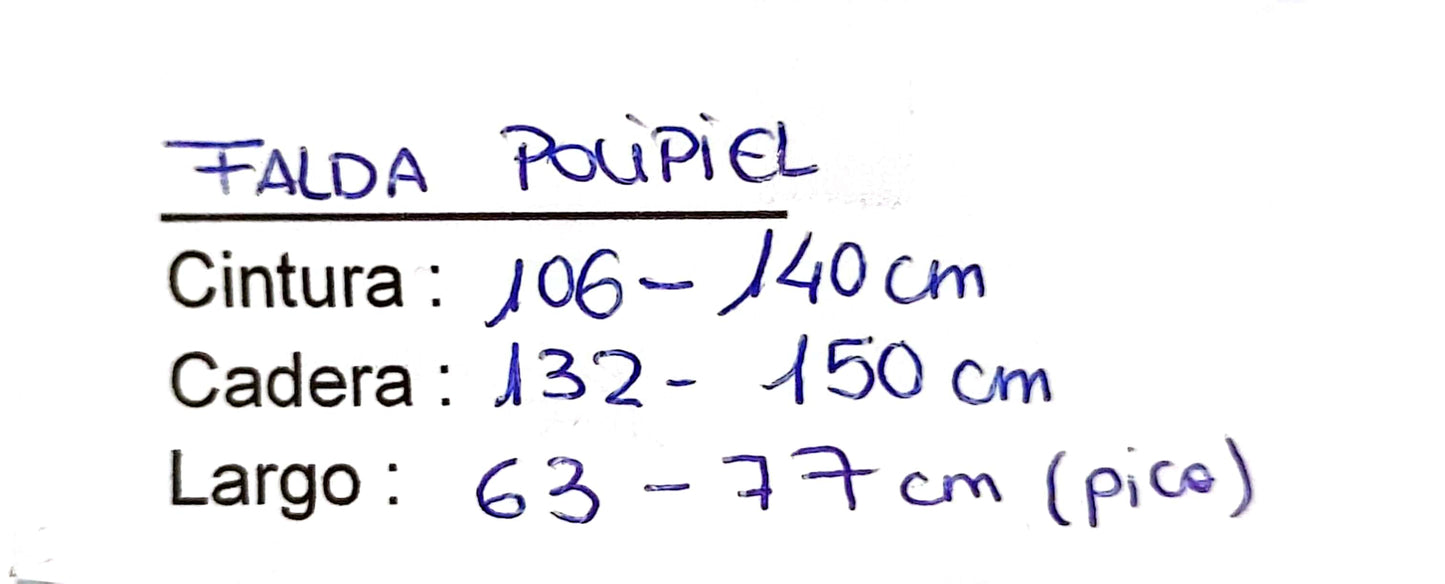 FALDA POLiPiEL
Cintura : 106 - 140 cm
Cadera : 132 - 150 cm
Largo : 63 - 77 cm (pico)